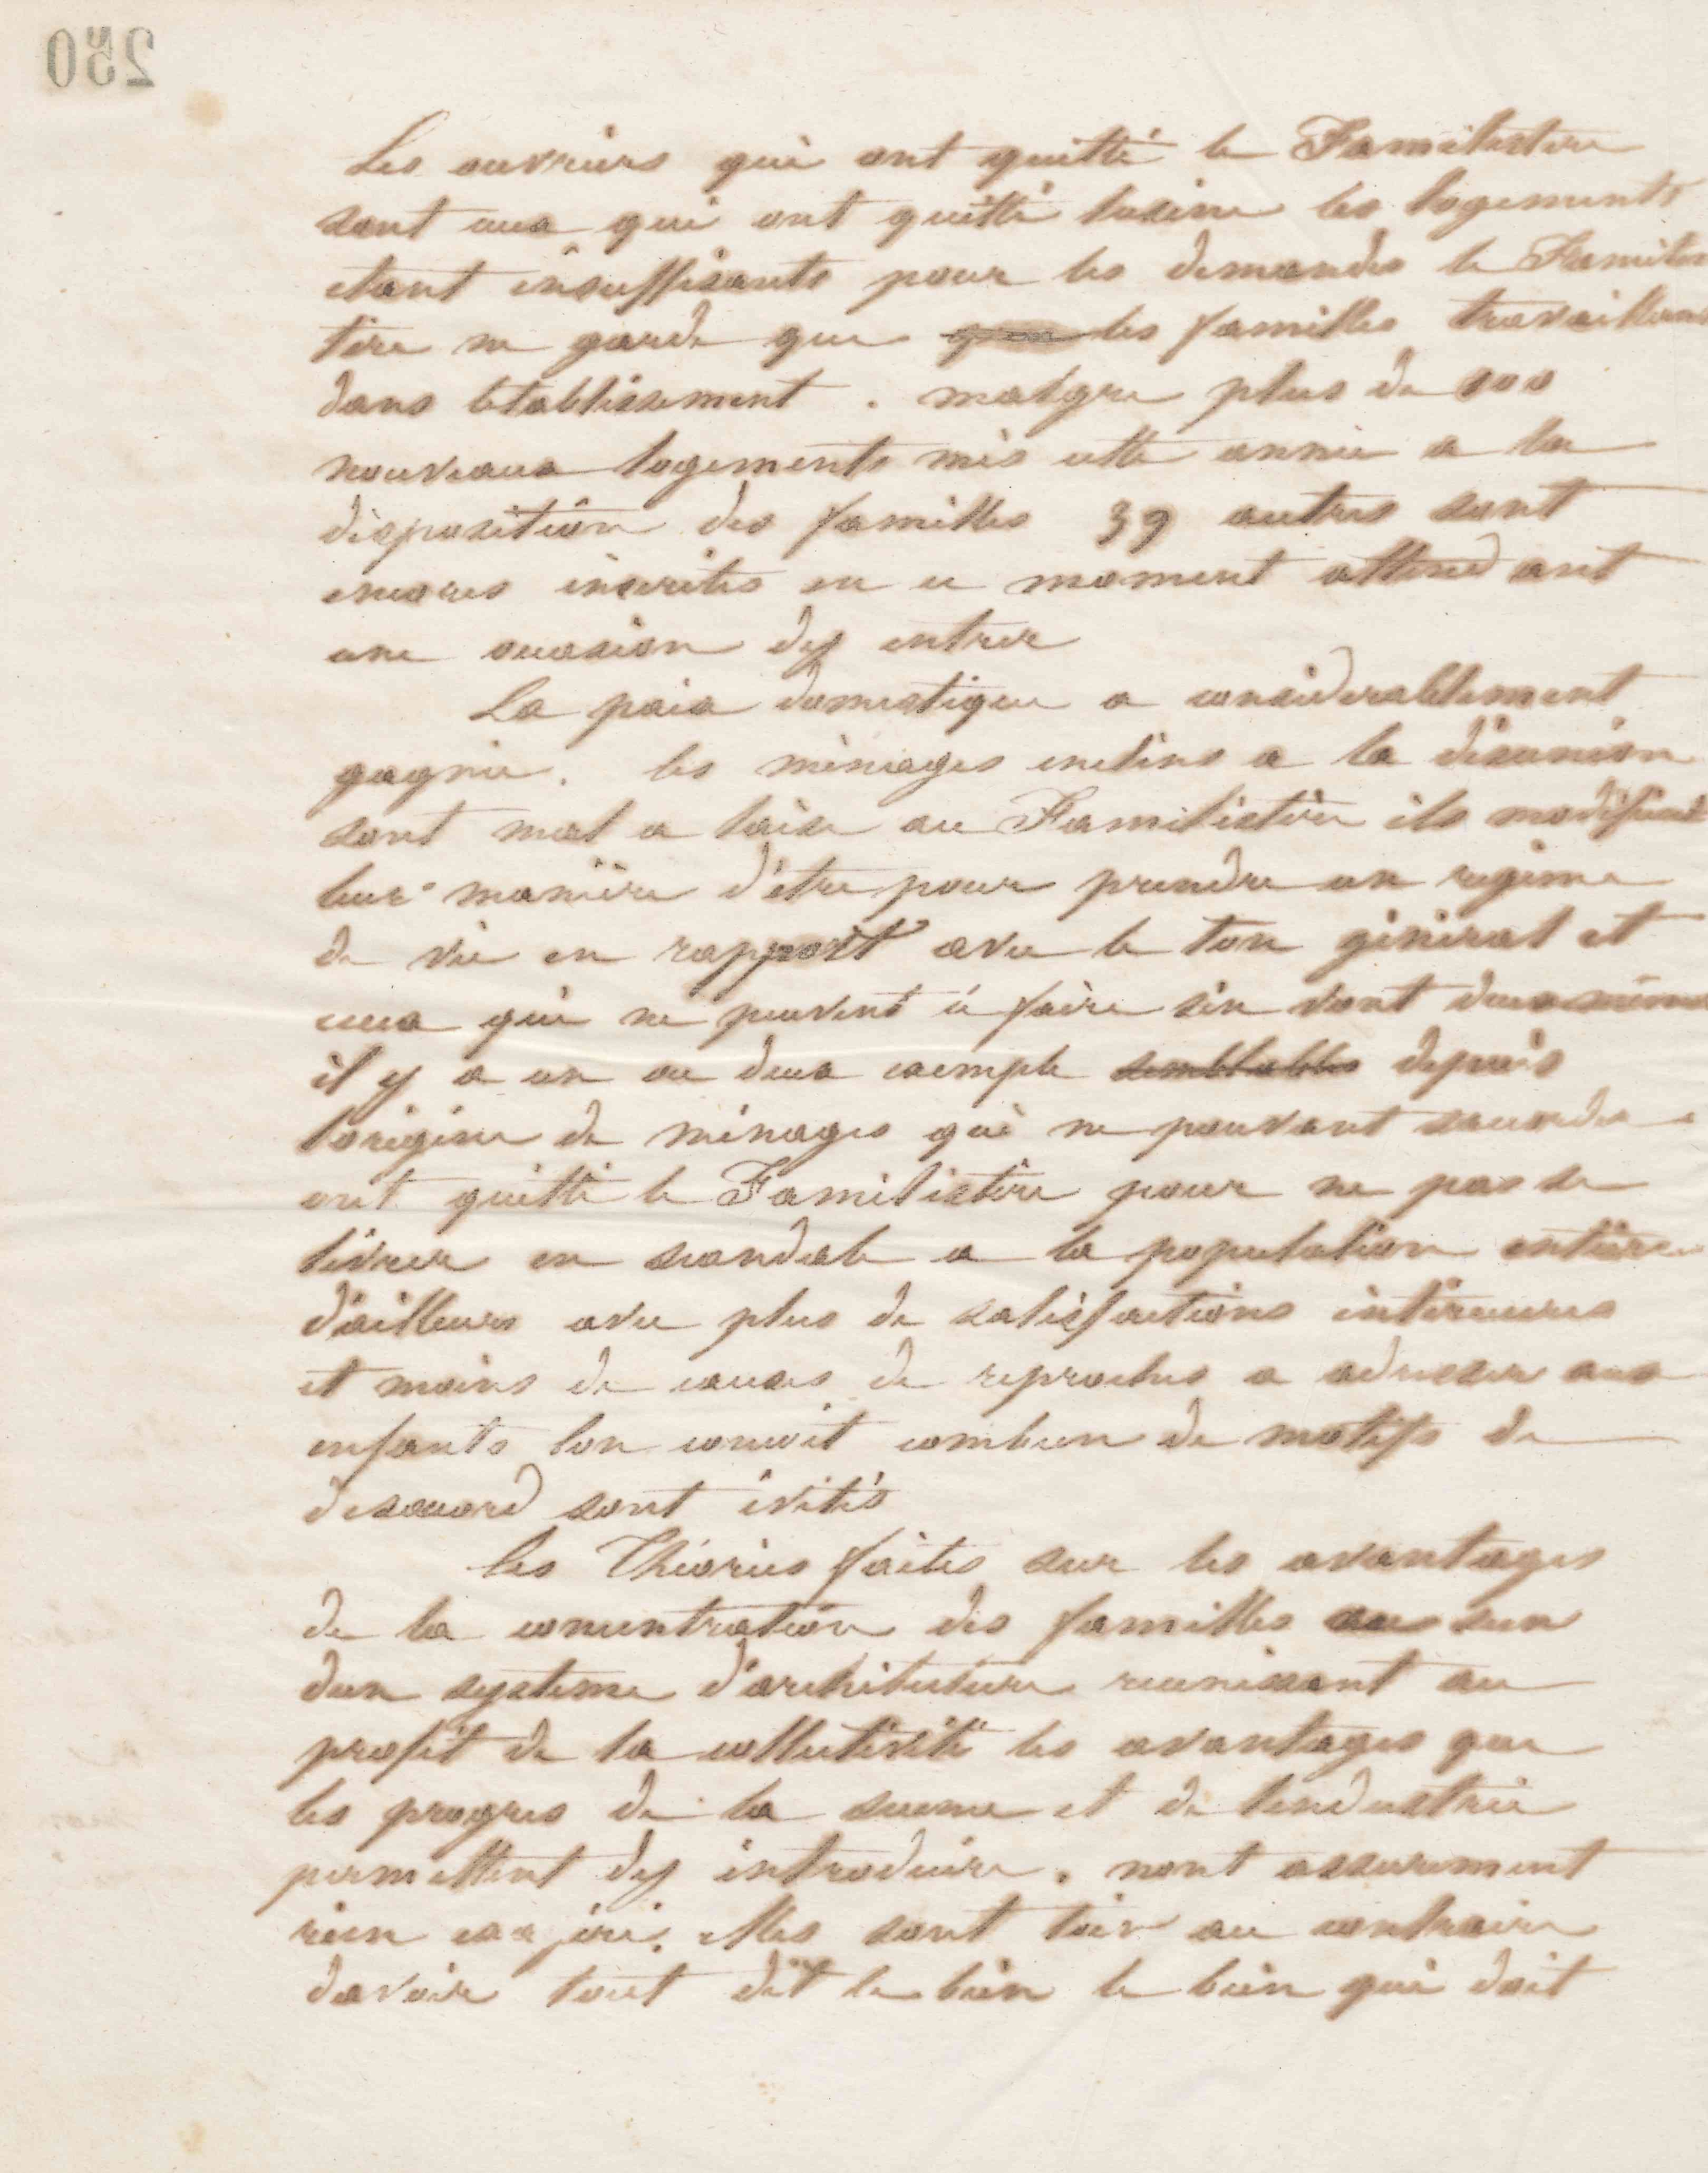 250
Les ouvriers qui ont quitté le Familistere
sont ceux qui ont quitté lusine les logements
etant insuffisants pour les demandes le Familis
tère ne garde que les familles travaillant
dans letablissement. malgre plus de 100
nouveaux logements mis cette année a la
disposition des familles 39 autres sont
encores inscrites en ce moment attendant
une occasion dy entrer
La paix domestique a considerablement
gagnée. les ménages enclins a la désunion
sont mal a laise au Familistère ils modifient
leur manière d'être pour prendre un regime
de vie en rapport avec le ton général et
ceux qui ne peuvent i faire s'en vont deux même
il y a un ou deux exemple semblables depuis
l'origine de ménages qui ne pouvant saccorder
ont quitté le Familistère pour ne pas se
livrer en scandale a la population entière
d'ailleurs avec plus de satisfactions intérieures
et moins de causes de reproches a adresser aux
enfants lon concoit combien de motifs de
desaccord sont évités
les Théories faites sur les avantages
de la concentration des familles au sein
dun systeme d'architecture reunissant au
profit de la collectivité les avantages que
les progres de la science et de lindustrie
permettent dy introduire. nont assurement
rien exagéré. elles sont loin au contraire
davoir tout dit le bien le bien qui doit